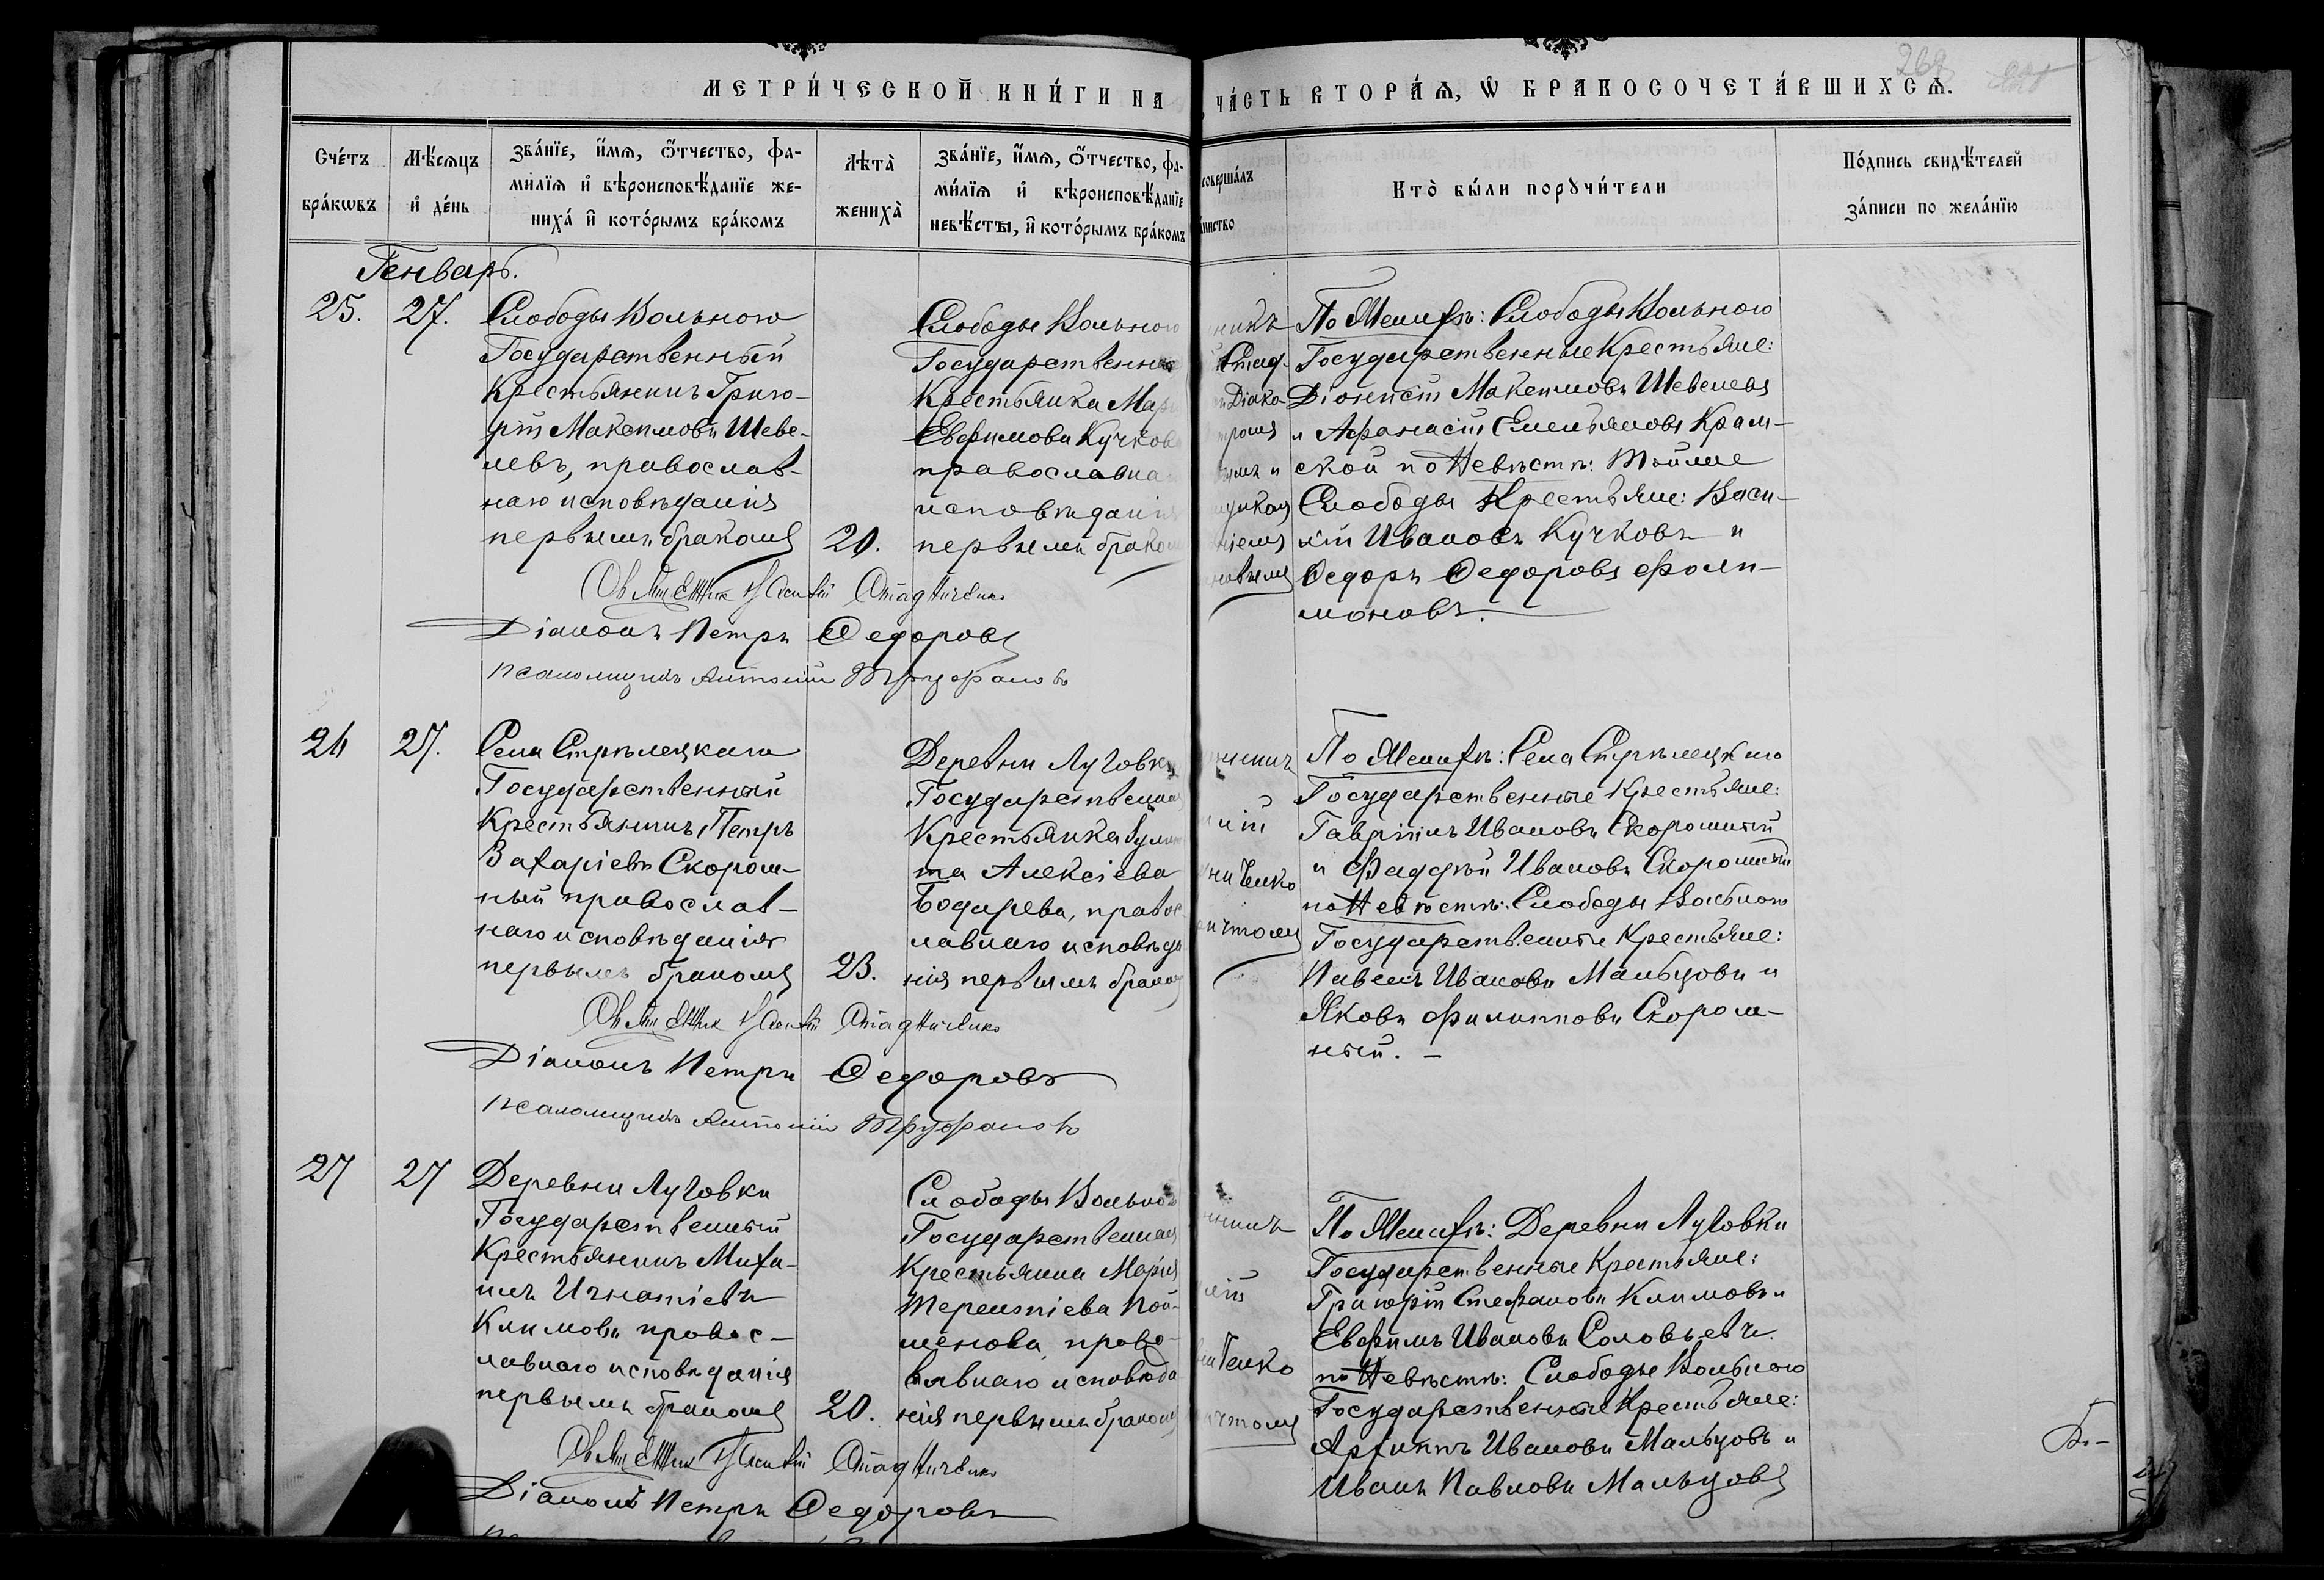 МЕТРИ́ЧЕСКОЙ КНИ́ГИ НА
ЧА́СТЬ ВТОРА́Ѧ, Ѡ БРАКОСОЧЕТА́ВШИХСѦ.
Сче́тъ бра́кѡвъ
Мѣ́сѧцъ и де́нь
Зва́нїе, и́мѧ, ѻ́тчество, фа-
ми́лїѧ и вѣроисповѣ́данїе же-
ниха́ и кото́рымъ бра́комъ
Лѣта̀ жениха̀
Зва́нїе, и́мѧ, ѻ́тчество, фа-
ми́лїѧ и вѣроисповѣ́данїе
невѣ́сты, и кото́рымъ бра́комъ
соверша́лъ
Кто̀ бы́ли порꙋчи́тели
По́дпись свидѣ́телей
за́писи по жела́нїю
Генварь.
25.
27.
Слободы Вольного
Государственный
Крестьянинъ Григо-
рій Максимовъ Шеве-
левъ, православ-
наго исповѣданія
первымъ бракомъ
20.
Слободы Вольного
Государственная
Крестьянка
Евфимова Кучкова
православна
исповѣданія
первымъ бракомъ
Стад-
Діако-
По Женихѣ: Слободы Вольного
Государственные Крестьяне:
Діонисій Максимовъ Шевелевъ
и Афанасій Емельяновъ Крам-
ской по Невѣстѣ: тойже
Слободы Крестьяне: Васи-
лій Ивановъ Кучковъ и
Ѳедоръ Ѳедоровъ Фили-
моновъ.
Священник Стадниченко
Діаконъ Петръ Ѳедоровъ
псаломщикъ Антоній Труфановъ
26
27.
Села Стрѣлецкаго
Государственный
Крестьянинъ Петръ
Захаріевъ Скором-
ный православ-
наго исповѣданія
первымъ бракомъ
23.
Деревни Луговки
Государственная
Крестьянка Іулит
та Алексіева
Бодарева, правос
лавнаго исповѣда
нія первымъ бракомъ
По Женихѣ: Села Стрѣлецкаго
Государственные Крестьяне:
Гавріилъ Ивановъ Скоромный
и Фаддѣй Ивановъ Скоромный
по Невѣстѣ: Слободы Вольного
Государственные Крестьяне:
Павелъ Ивановъ Мальцовъ и
Яковъ Филипповъ Скором-
ный. –
Священник Стадниченко
Діаконъ Петръ Ѳедоровъ
псаломщикъ Антоній Труфановъ
27
27
Деревни Луговки
Государственный
Крестьянинъ Миха-
илъ Игнатіевъ
Климовъ правос-
лавнаго исповѣданія
первымъ бракомъ
20.
Слободы Вольного
Государственная
Крестьянка Марія
Терентіева
право-
славнаго исповѣда
нія первымъ бракомъ
По Женихѣ: Деревни Луговки
Государственные Крестьяне:
Григорій Стефановъ Климовъ и
Евфимъ Ивановъ Соловьевъ.
по Невѣстѣ: Слободы Вольного
Государственные Крестьяне:
Архиппъ Ивановъ Мальцовъ и
Иванъ Павловъ Мальцовъ
Священник Стадниченко
Діаконъ Петръ Ѳедоровъ